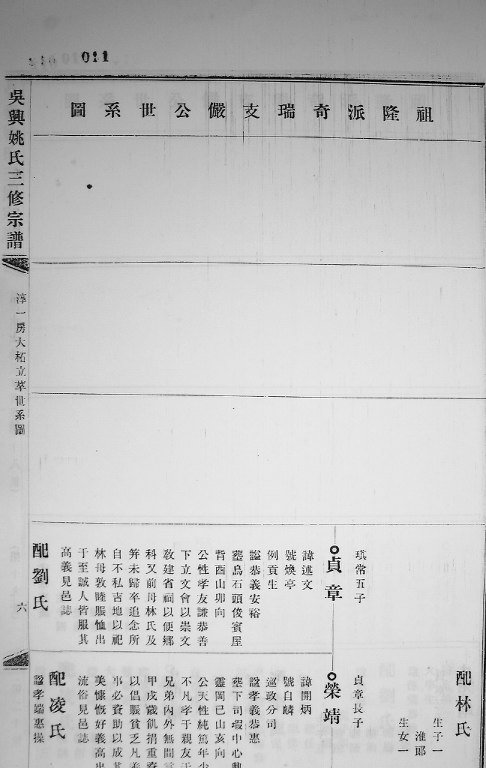 011
祖隆派奇瑞支儼公世系圖
吳興姚氏三修宗譜
淳一房大柘立萃世系圖
六
琪常五子
貞章
諱述文
號煥亭
例貢生
諡恭義安裕
墓烏石頭俊賓屋
背酉山卯向
公性孝友謙恭善
下立文會以崇文
敎建省祠以便鄉
科又前母林氏及
笄未歸卒追念所
自不私吉地以祀
林母敦睦賑恤出
于至誠人皆服其
高義見邑誌
配劉氏
貞章長子
榮靖
諱開炳
號自麟
巡政分司
諡孝義恭惠
墓下司堌中心
靈岡巳山亥向
公天性純篤年少
不凡孝于親友于
兄弟內外無間言
甲戌歲飢捐重
以倡賑貧乏凡
事必資助以成其
美慷慨好義高出
流俗見邑誌
配凌氏
諡孝端惠操
配林氏
生子一
淮郎
生女一